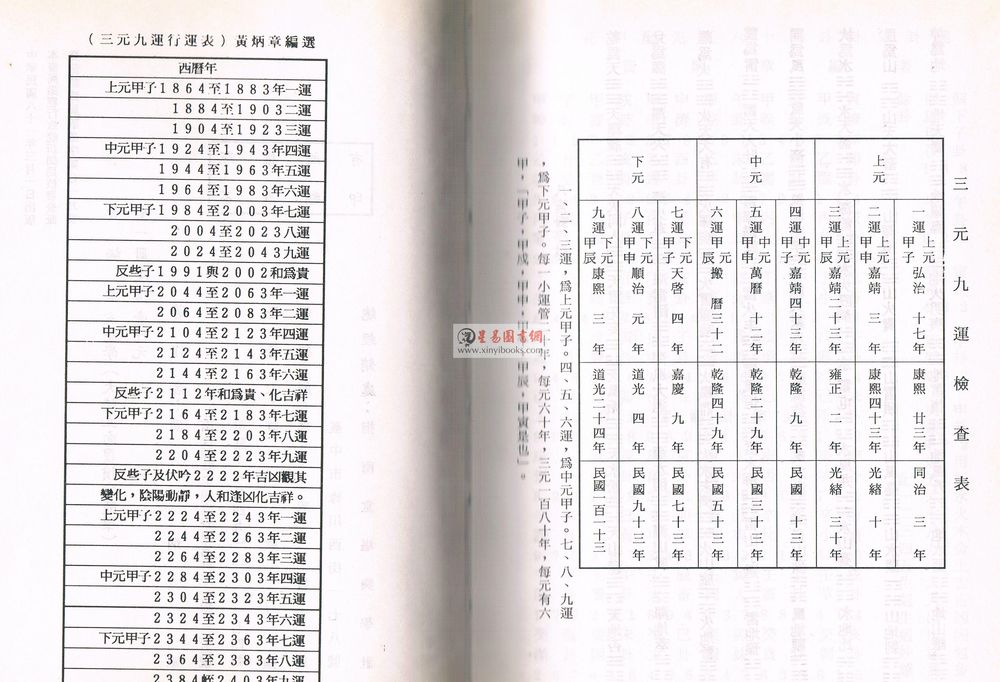 三元九運檢查表
上元
中元
下元
一運甲子 上元 弘治十七年 康熙廿三年 同治三年
二運甲申 上元 嘉靖三年 康熙四十三年 光緒十年
三運甲辰 上元 嘉靖二十三年 雍正二年 光緒三十年
四運甲子 中元 嘉靖四十三年 乾隆九年 民國十三年
五運甲申 中元 萬曆十二年 乾隆二十九年 民國三十三年
六運甲辰 元 搬曆三十二 乾隆四十九年 民國五十三年
七運甲子 下元 天啓四年 嘉慶九年 民國七十三年
八運甲申 下元 順治元年 道光四年 民國九十三年
九運甲辰 下元 康熙三年 道光二十四年 民國一百一十三
一、二、三運，爲上元甲子。四、五、六運，爲中元甲子。七、八、九運
，爲下元甲子。每一小運管二十年，每元六十年，三元一百八十年，每元有六
甲，「甲子，甲戍，甲申，甲午，甲辰，甲寅是也」。
（三元九運行運表）黃炳章編選
西曆年
上元甲子1864至1883年一運
1884至1903二運
1904至1923三運
中元甲子1924至1943年四運
1944至1963年五運
1964至1983年六運
下元甲子1984至2003年七運
2004至2023八運
2024至2043九運
反些子1991與2002和爲貴
上元甲子2044至2063年一運
2064至2083年二運
中元甲子2104至2123年四運
2124至2143年五運
2144至2163年六運
反些子2112年和爲貴、化吉祥
下元甲子2164至2183年七運
2184至2203年八運
2204至2223年九運
反些子及伏吟2222年吉凶觀其
變化，陰陽動靜，人和逢凶化吉祥。
上元甲子2224至2243年一運
2244至2263年二運
2264至2283年三運
中元甲子2284至2303年四運
2304至2323年五運
2324至2343年六運
下元甲子2344至2363年七運
2364至2383年八運
2384至2403年九運
星易图書網
www.xinyibooks.com